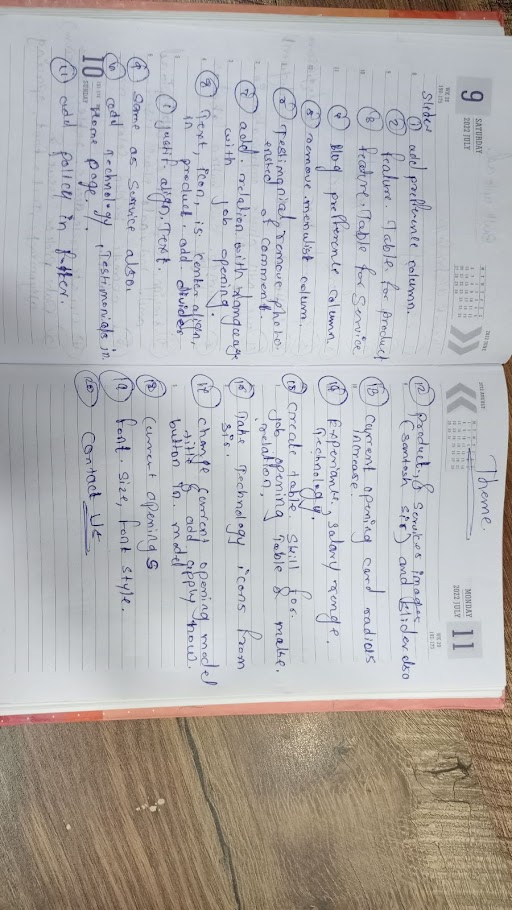 9
SATURDAY
2022 JULY
Slider
① add prefference column.
② feature. Table. for product
③ feature. Table for Service
④ Blog prefference column
⑤ remove. column.
⑥ Testimonial remove photo
instead of comment.
⑦ add. relation with language
with job opening.
⑧ Text, icon, is center align,
in product. add divider
① justify align. Text.
⑨ Same as Service also.
10
SUNDAY
⑩ add Technology, Testimonials in
Home page.
⑪ add policy in footer.
Theme.
MONDAY
2022 JULY
11
⑫ product, & Services images
(santosh sir) and slider also
⑬ current opening card radius
increase
⑭ Experiance, salary range,
Technology.
⑮ create table. Skill for.
job opening Table & make.
relation.
⑯ Take Technology icons from
sir.
⑰ change current opening model
title & add apply now.
button in. model
⑱ Current openings
⑲ font. size, font style.
⑳ Contact Us